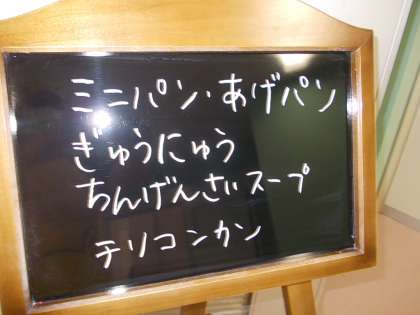 ミニパン・あげパン
ぎゅうにゅう
ちんげんさいスープ
チリコンカン